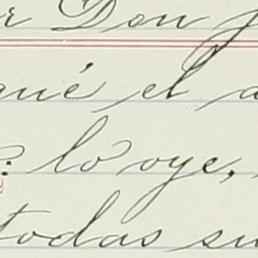 r Don
qué el a
: lo oye,
todas su